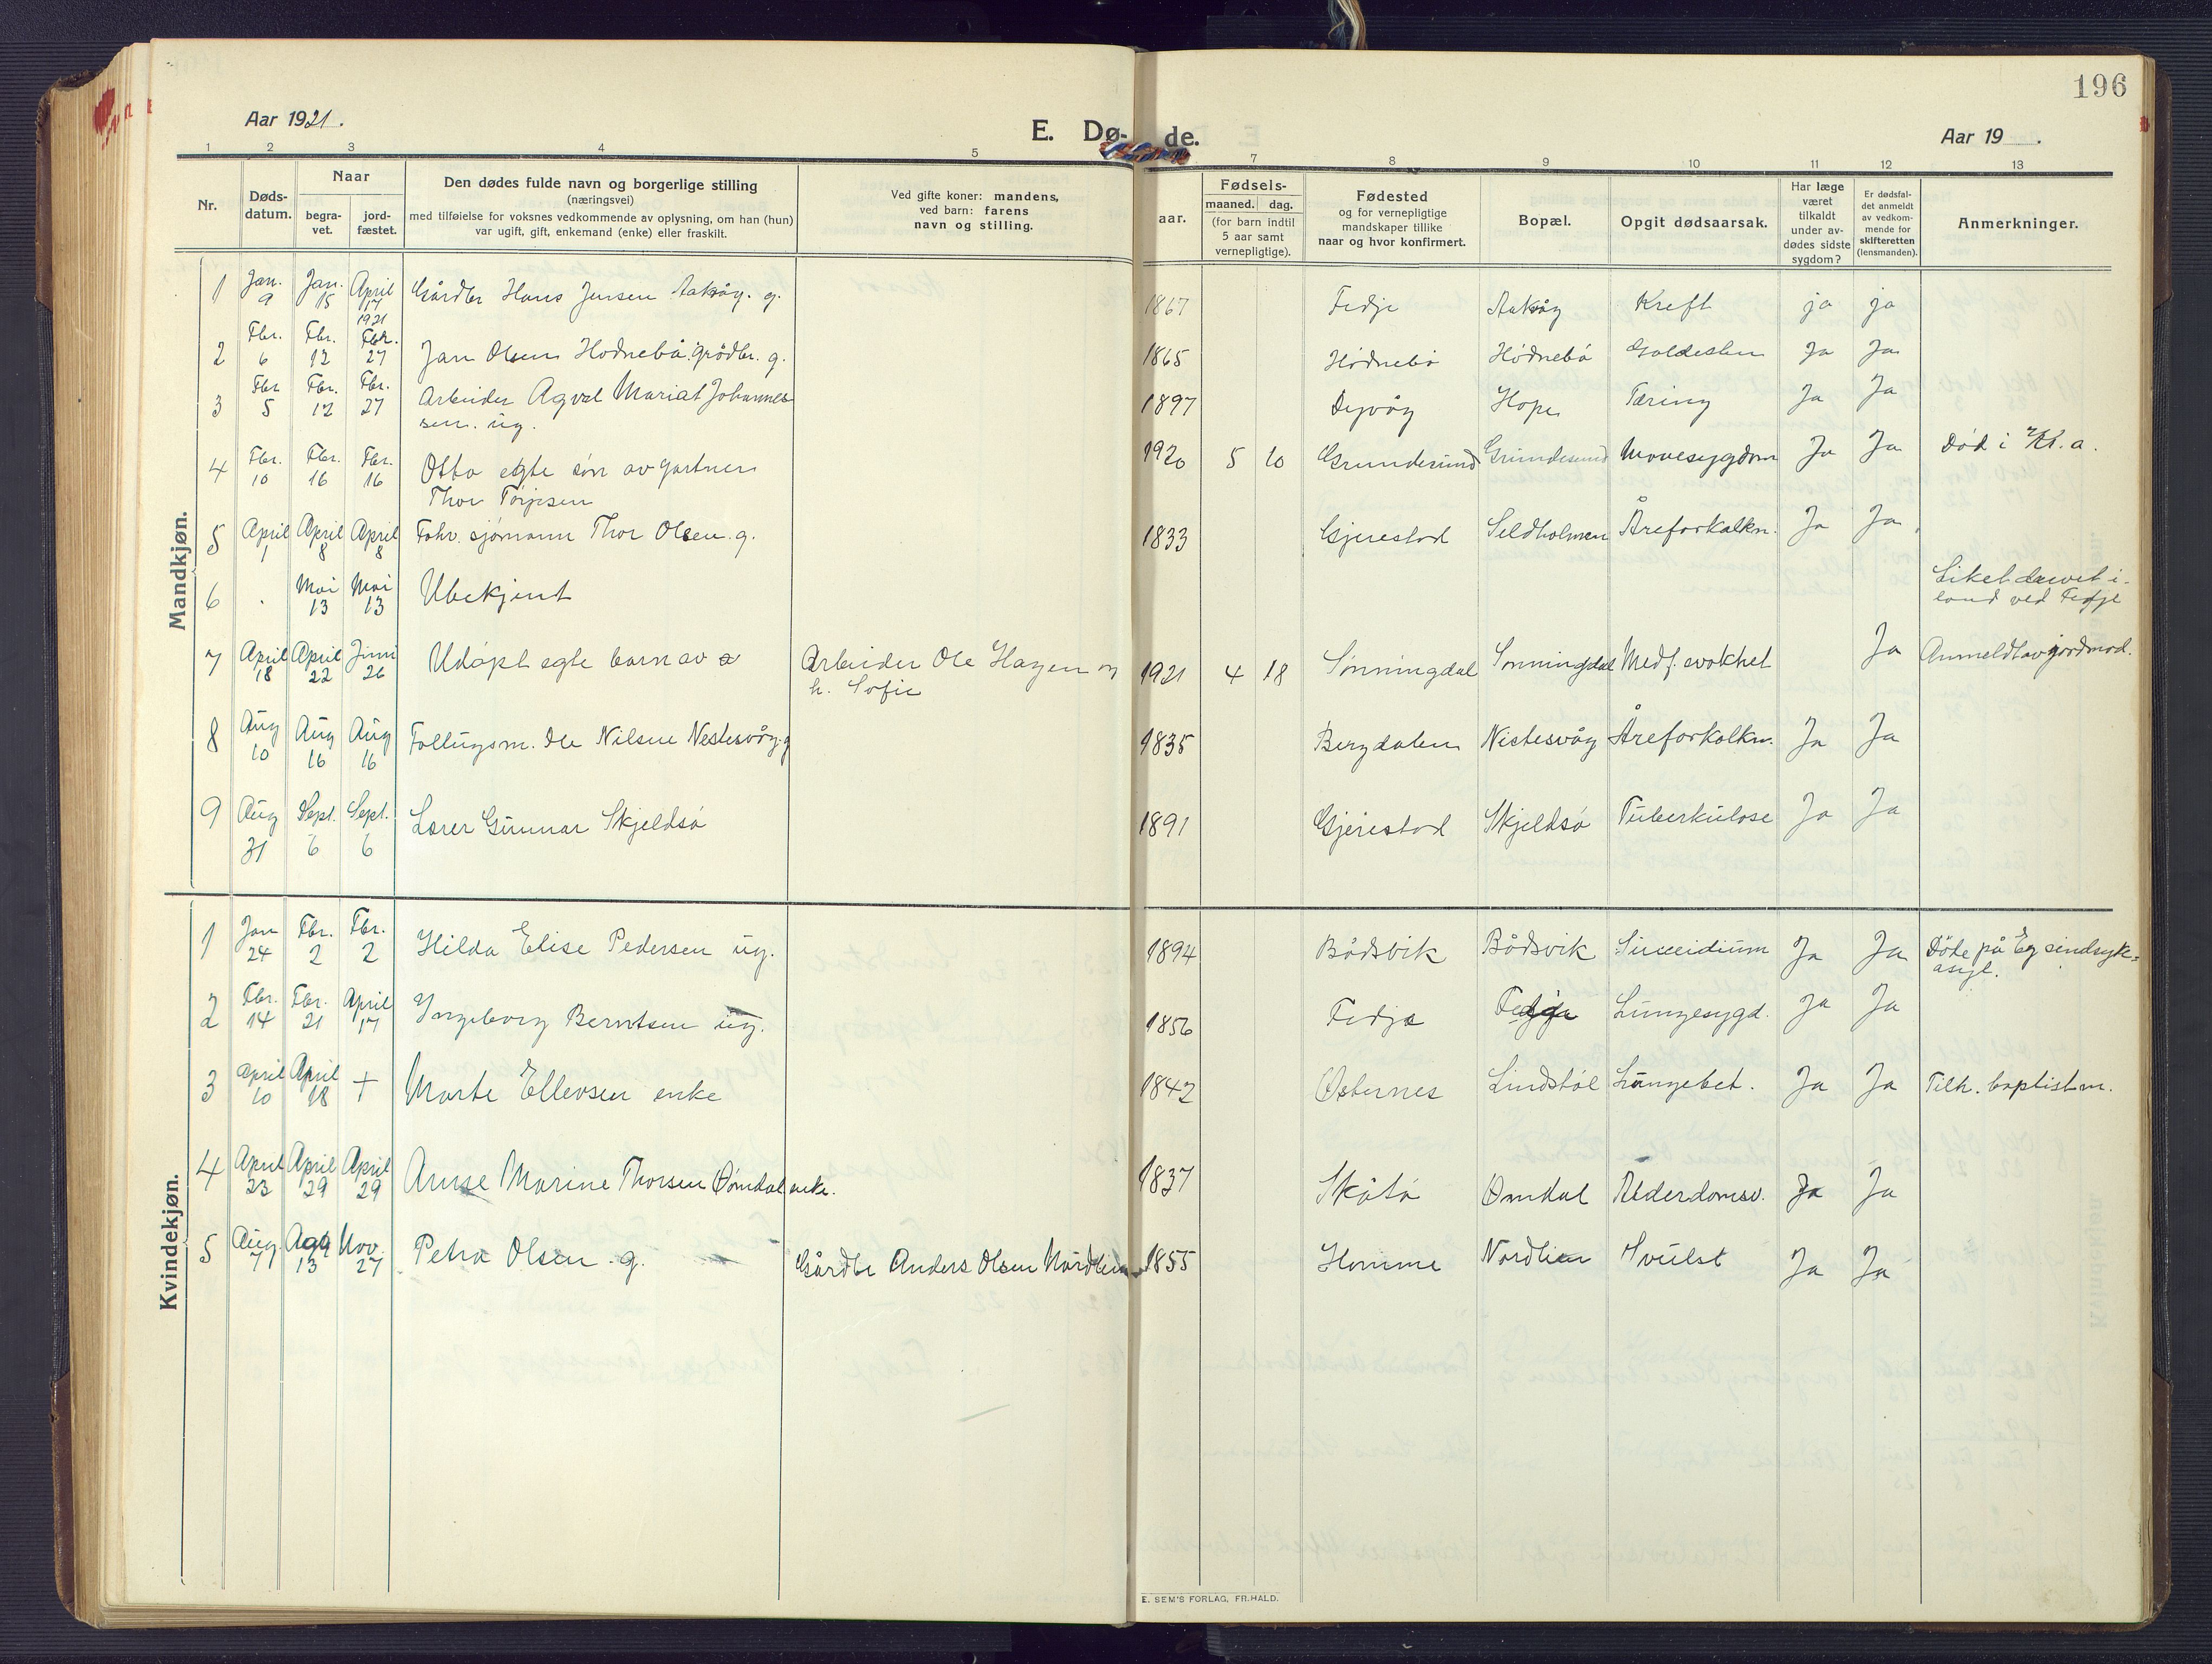 196
Aar 1921.
E. Dø- de.
Aar 19 .
1 2 3 4 5 7 8 9 10 11 12 13
Nr.
Døds-
datum.
Naar
begra-
vet.
jord-
fæstet.
Den dødes fulde navn og borgerlige stilling
(næringsvei)
med tilføielse for voksnes vedkommende av oplysning, om han (hun)
var ugift, gift, enkemand (enke) eller fraskilt.
Ved gifte koner: mandens,
ved barn: farens
navn og stilling.
aar.
Fødsels-
maaned. dag.
(for barn indtil
5 aar samt
vernepligtige).
Fødested
og for vernepligtige
mandskaper tillike
naar og hvor konfirmert.
Bopæl.
Opgit dødsaarsak.
Har læge
været
tilkaldt
under av-
dødes sidste
sygdom?
Er dødsfal-
det anmeldt
av vedkom-
mende for
skifteretten
(lensmanden).
Anmerkninger.
Mandkjøn.
1 Jan. 9 Jan. 15 April 17 1921 Gårdbr Hans Jensen Aakvåg. g. 1867 Fedje Aakvåg Kreft ja ja
2 Fbr. 6 Fbr. 12 Fbr. 27 Jan Olsen Hødnebø. grdbr. g. 1865 Hødnebø Hødnebø Galdesten Ja Ja
3 Fbr 5 Fbr. 12 Fbr. 27 Arbeider Agval Mariat Johannes-
sen. ug. 1897 Dypvåg Hope Tæring Ja Ja
4 Fbr. 10 Fbr. 16 Fbr. 16 Otto egte søn av gartner
Thor Torjusen 1920 5 10 Grundesund Grundesund Mavesygdom Ja Ja Død i Kr. a.
5 April 1 April 8 April 8 Fohv. sjømann Thor Olsen. g. 1833 Gjerestad Seldholmen Åreforkalkn. Ja Ja
6 Mai 13 Mai 13 Ubekjent Liket drevet i-
land ved Fedje
7 April 18 April 22 Juni 26 Udøpt egte barn av Arbeider Ole Hagen og
h. Sofie 1921 4 18 Sønningdal Sønningdal Medf. svakhet Ja Anmeldt av jordmod.
8 Aug 10 Aug 16 Aug 16 Fattigsm. Ole Nilsen Nestesvåg. g 1835 Bergdalen Nestesvåg Åreforkalkn. Ja Ja
9 Aug 31 Sept. 6 Sept. 6 Lærer Gunnar Skjeldsø 1891 Gjerestad Skjeldsø Tuberkulose Ja Ja
Kvindekjøn.
1 Jan 24 Fbr. 2 Fbr. 2 Hilda Elise Pedersen ug. 1894 Bådsvik Bådsvik Suiceidium Ja Ja Døde på Eg sindsyke-
asyl.
2 Fbr. 14 Fbr. 21 April 17 Ingeborg Berntsen ug. 1856 Fedje Fedje Lungesygd. Ja Ja
3 April 10 April 18 + Marte Ellevsen enke 1842 Østernes Lindstøl Lungebet. Ja Ja Tilh. baptistm.
4 April 23 April 29 April 29 Anne Marine Thorsen Ømdal enke. 1837 Skåtø Ømdal Alderdomsv. Ja Ja
5 Aug. 7 Aug 13 Nov. 27 Petra Olsen. g. Gårdbr Anders Olsen Nordlien 1855 Homme Nordlien Svulst Ja Ja
E. SEM'S FORLAG, FR.HALD.